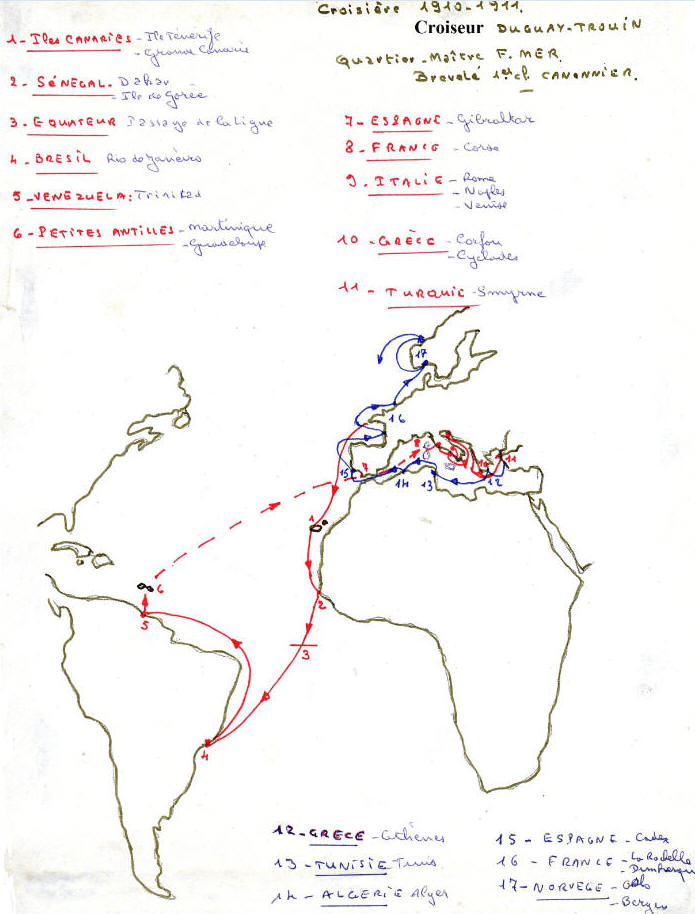 Croisière 1910-1911.
Croiseur DUGUAY-TROUIN
Quartier-Maître F. MER.
Breveté 1er cl. CANONNIER.
1- Iles CANARIES - Ile Ténérife
- Grande Canarie
2- SÉNÉGAL. Dakar
- Ile de Gorée
3- EQUATEUR Passage de la Ligne
4- BRESIL Rio de Janeiro
5-VENEZUELA: Trinited
6- PETITES ANTILLES - Martinique
- Guadeloupe
7- ESPAGNE - Gibraltar
8- FRANCE - Corse
9. ITALIE - Rome
- Naples
- Venise
10 - GRÈCE - Corfou
- Cyclades
11 - TURQUIE - Smyrne
17
16
15
14
13
12
11
10
1
2
3
4
5
6
12-GRECE - Athènes
13 - TUNISIE Tunis
14 - ALGERIE Alger
15 - ESPAGNE - Cadex
16 - FRANCE - La Rochelle
- Dunkerque
17-NORVEGE - Oslo
- Bergen